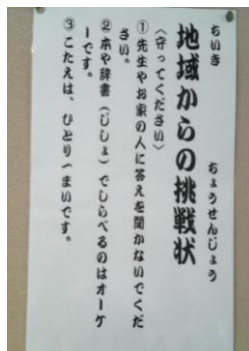 ちいき　ちょうせんじょう
地域からの挑戦状
〈守ってください〉
①先生やお家の人に答えを聞かないでくだ
さい。
②本や辞書（じしょ）でしらべるのはオーケ
ーです。
③こたえは、ひとり一まいです。